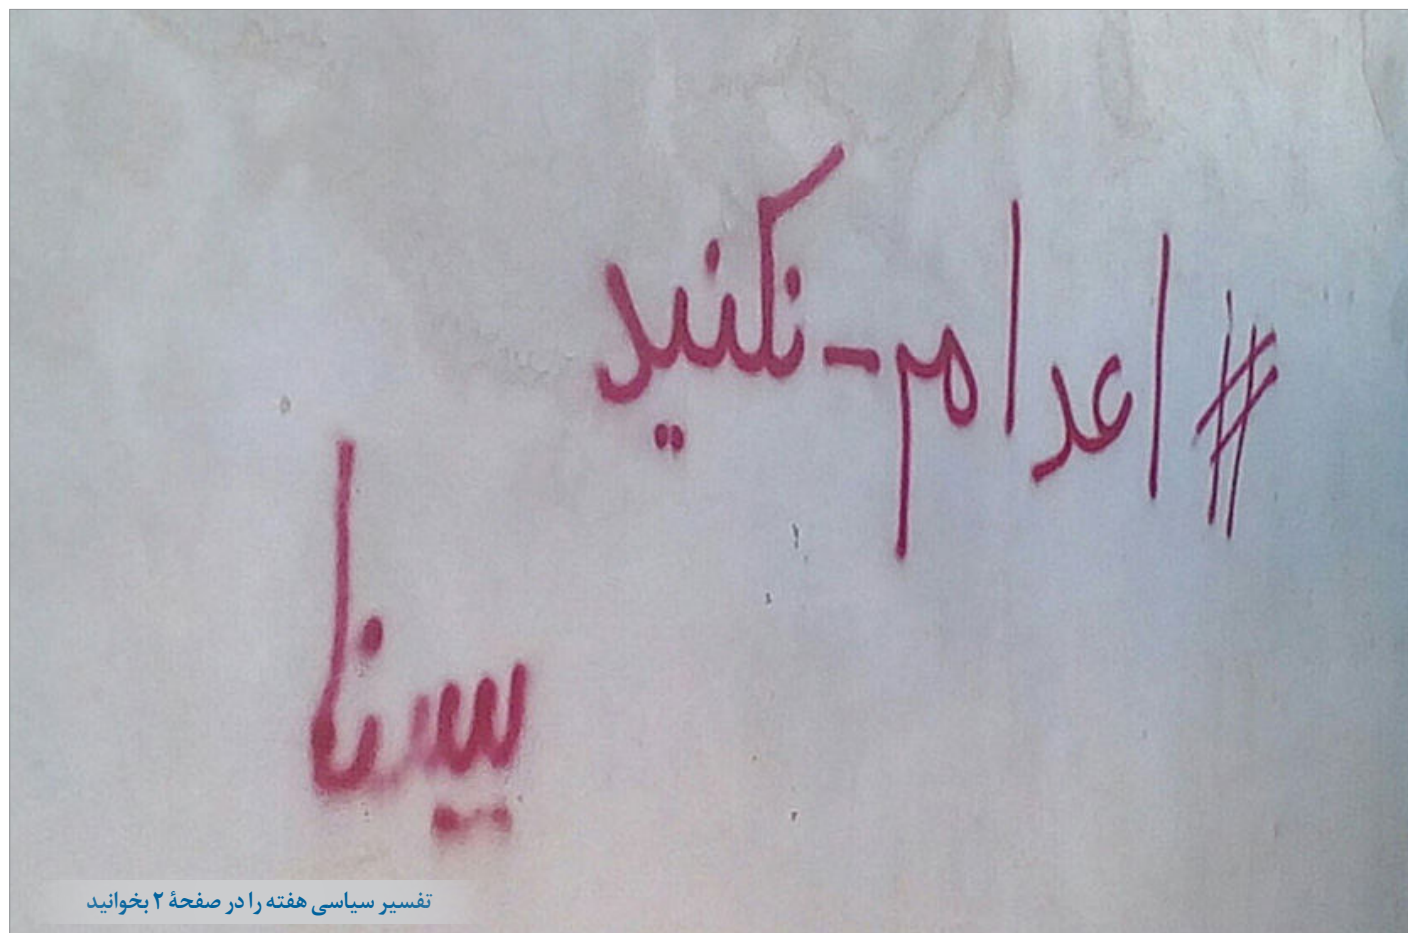 #اعدام-نکنید
سینا
تفسیر سیاسی هفته را در صفحهٔ ۲ بخوانید